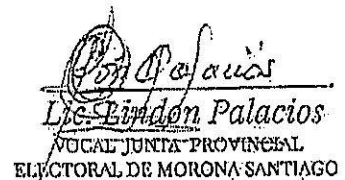 Lic. Lindon Palacios
VOCAL JUNTA PROVINCIAL
ELECTORAL DE MORONA SANTIAGO